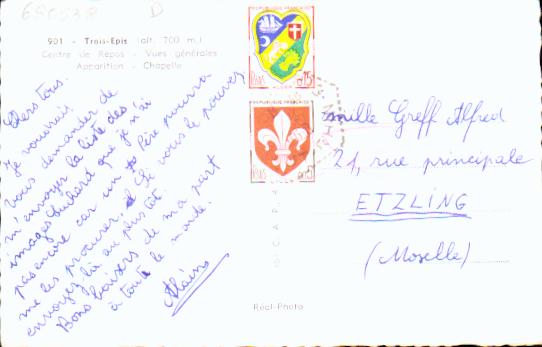 680538 D
901 - Trois-Epis (alt. 700 m.)
Centre de Repos - Vues générales
Apparition - Chapelle
Chers tous.
Je voudrais
vous demander de
m'envoyer la liste des
images Suchard que je n'ai
pas encore car un père pourra
me les procurer. Si vous le pouvez
envoyez là au plus tôt.
Bons baisers de ma part
à toute le monde.
Alain
REPUBLIQUE FRANÇAISE
ALGER
REPUBLIQUE FRANÇAISE
LILLE
Famille Greff Alfred
21, rue principale
ETZLING
(Moselle)
Réal-Photo